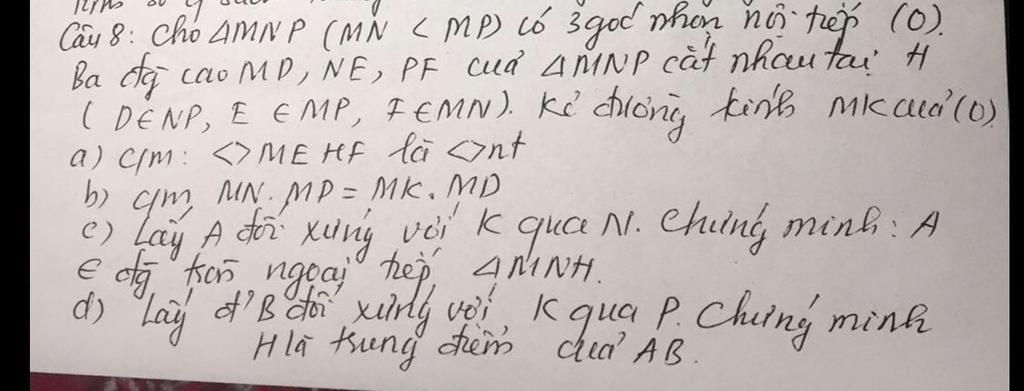 Câu 8: Cho ΔMNP (MN < MP) có 3 goc nhọn nội tiếp (O).
Ba đg cao MD, NE, PF của ΔMNP cắt nhau tại H
( D∈NP, E ∈ MP, F∈MN). Kẻ đường kính MK của (O)
a) C/m: <> MEHF là <> nt
b) c/m MN. MP = MK. MD
c) Lấy A đối xứng với K qua N. Chứng minh: A
∈ đg tròn ngoại tiếp ΔMNH.
d) Lấy đ' B đối xứng với K qua P. Chứng minh
H là trung điểm của AB.